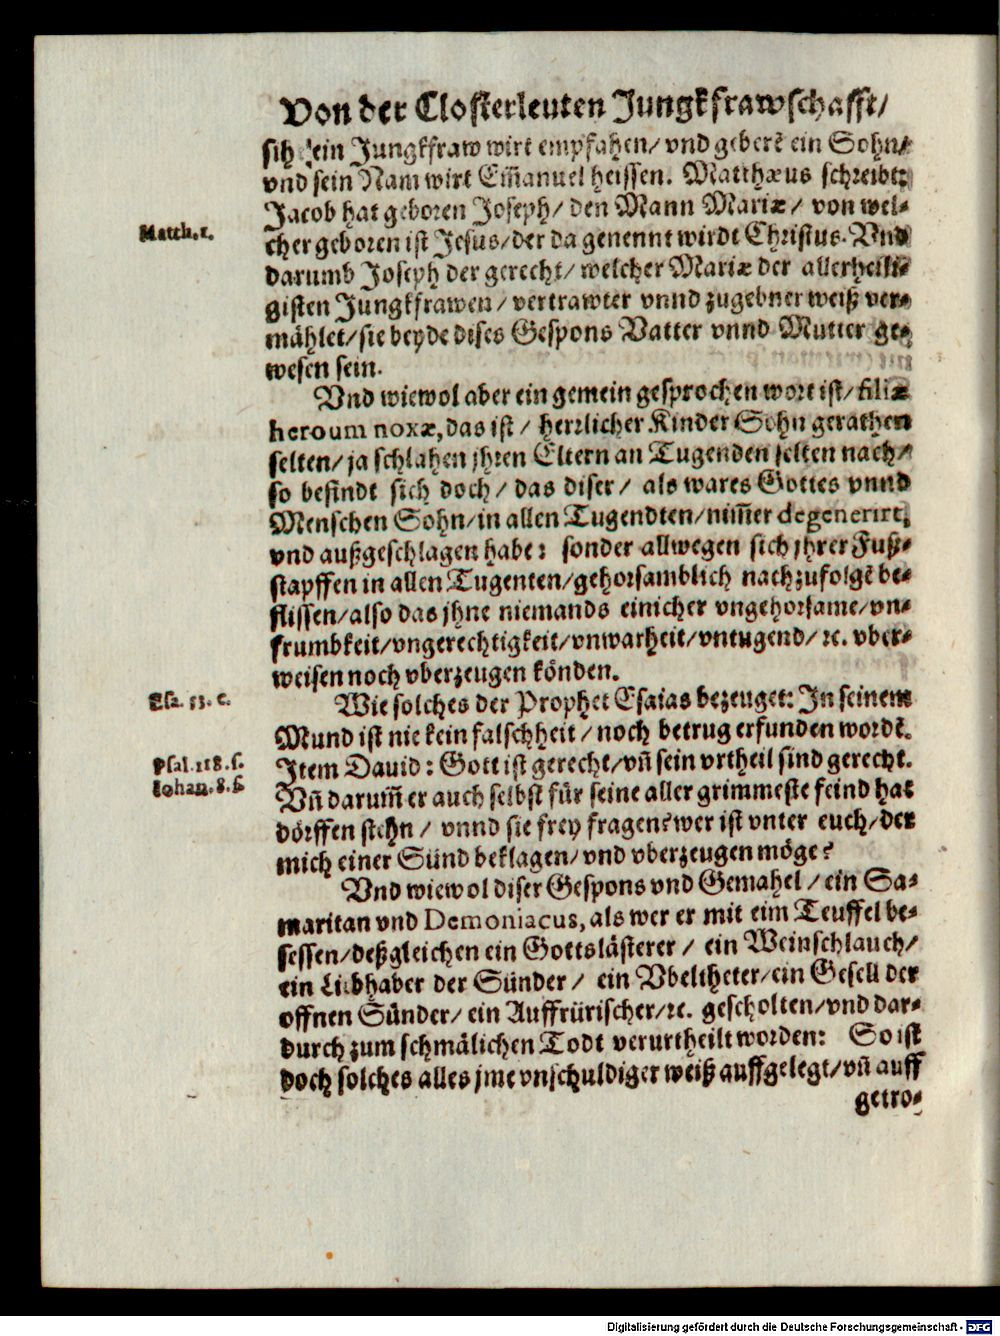 Von der Closterleuten Jungkfrawschafft/
sih ein Jungkfraw wirt empfahen/ vnd geberẽ ein Sohn/
vnd sein Nam wirt Em̃anuel heissen. Matthæus schreibt:
Jacob hat geboren Joseph/ den Mann Mariæ/ von wel-
Matth. 1.
cher geboren ist Jesus/ der da genennt wirdt Christus. Vnd
darumb Joseph der gerecht/ welcher Mariæ der allerheili-
gisten Jungkfrawen/ vertrawter vnnd zugebner weiß ver-
mählet/ sie beyde dises Gespons Vatter vnnd Mutter ge-
wesen sein.
Vnd wiewol aber ein gemein gesprochen wort ist/ filiæ
heroum noxæ, das ist/ herrlicher Kinder Sohn gerathen
selten/ ja schlahen jhren Eltern an Tugenden selten nach/
so befindt sich doch/ das diser/ als wares Gottes vnnd
Menschen Sohn/ in allen Tugendten/ nim̃er degenerirt,
vnd außgeschlagen habe: sonder allwegen sich jhrer Fuß-
stapffen in allen Tugenten/ gehorsamblich nachzufolgẽ be-
flissen/ also das jhne niemands einicher vngehorsame/ vn-
frumbkeit/ vngerechtigkeit/ vnwarheit/ vntugend/ ꝛc. vber-
weisen noch vberzeugen könden.
Esa. 53. c.
Wie solches der Prophet Esaias bezeuget: In seinem
Mund ist nie kein falschheit/ noch betrug erfunden wordẽ.
Psal. 118. f.
Item Dauid: Gott ist gerecht/ vñ sein vrtheil sind gerecht.
Iohan. 8. f.
Vñ darum̃ er auch selbst für seine aller grimmeste feind hat
dörffen stehn/ vnnd sie frey fragen? wer ist vnter euch/ der
mich einer Sünd beklagen/ vnd vberzeugen möge?
Vnd wiewol diser Gespons vnd Gemahel/ ein Sa-
maritan vnd Demoniacus, als wer er mit eim Teuffel be-
sessen/ deßgleichen ein Gottslästerer/ ein Weinschlauch/
ein Liebhaber der Sünder/ ein Vbeltheter/ ein Gesell der
offnen Sünder/ ein Auffrürischer/ ꝛc. gescholten/ vnd dar-
durch zum schmälichen Todt verurtheilt worden: So ist
doch solches alles jme vnschuldiger weiß auffgelegt/ vñ auff
getro-
Digitalisierung gefördert durch die Deutsche Forschungsgemeinschaft - DFG